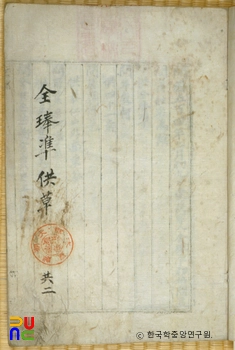 全琫準供草
共二
ⓒ한국학중앙연구원.